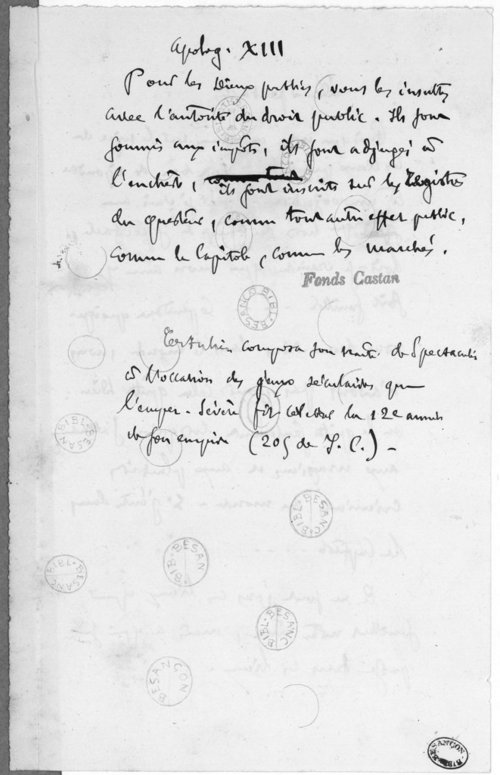 Apolog. XIII
Pour les Dieux publics, vous les insultez
avec l'autorité du droit public. Ils sont
soumis aux impôts, ils sont adjugés à
l'enchère, ils sont inscrits sur les Registres
du questeur, comme tout autre effet public,
comme le Capitole, comme les marchés.
Fonds Castan
Tertullien composa son traité de Spectaculis
à l'occasion des jeux séculaires que
l'emper. Sévère fit célébrer la 12e année
de son empire (205 de J. C.) –
BIBL. BESANÇON
BIBL. BESANÇON
BIBL. BESAN
BIBL. BESANÇ
BIBL. BESANÇ
BIB. BESAN
BIBL. BESANC
BESANÇON
BESANÇON BIB.